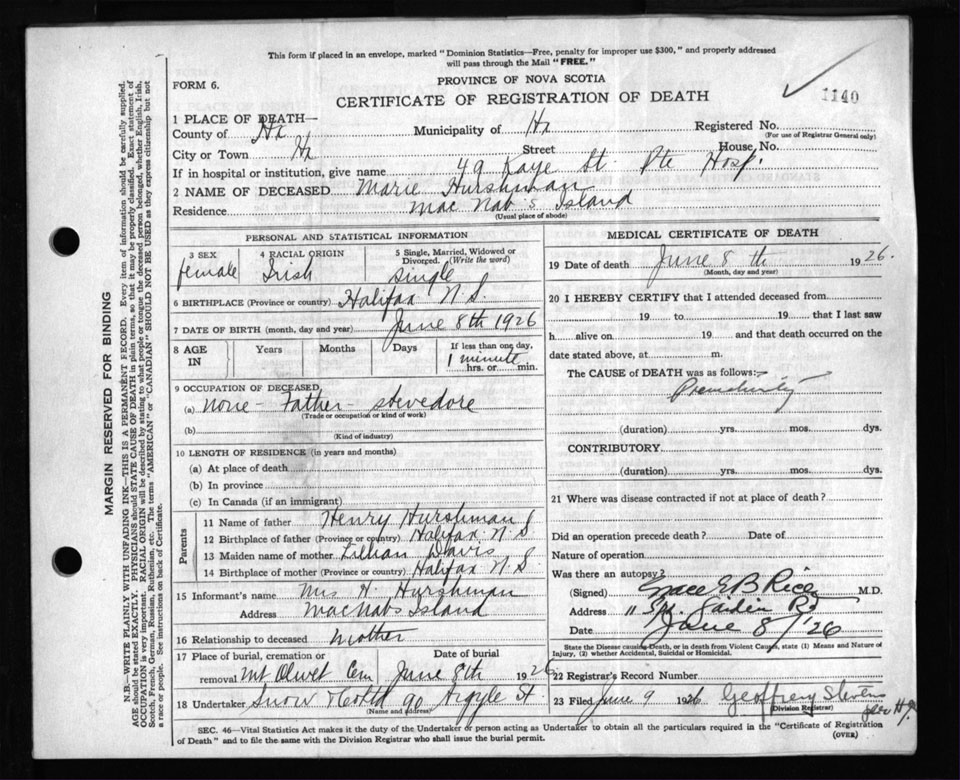 This form if placed in an envelope, marked "Dominion Statistics—Free, penalty for improper use $300," and properly addressed
will pass through the Mail "FREE."
FORM 6.
PROVINCE OF NOVA SCOTIA
CERTIFICATE OF REGISTRATION OF DEATH
1140
1 PLACE OF DEATH—
County of Hx Municipality of Hx Registered No.
(For use of Registrar General only)
City or Town Hx Street House No.
If in hospital or institution, give name 49 Kaye St. Pte Hosp.
2 NAME OF DECEASED Marie Hurshman
Residence Mac Nab's Island
(Usual place of abode)
PERSONAL AND STATISTICAL INFORMATION
3 SEX 4 RACIAL ORIGIN 5 Single, Married, Widowed or Divorced. (Write the word)
female Irish single
6 BIRTHPLACE (Province or country) Halifax N.S.
7 DATE OF BIRTH (month, day and year) June 8th 1926
8 AGE IN Years Months Days If less than one day, 1 minute hrs. or min.
9 OCCUPATION OF DECEASED
(a) none - Father - stevedore
(Trade or occupation or kind of work)
(b)
(Kind of industry)
10 LENGTH OF RESIDENCE (in years and months)
(a) At place of death
(b) In province
(c) In Canada (if an immigrant)
Parents
11 Name of father Henry Hurshman
12 Birthplace of father (Province or country) Halifax N.S.
13 Maiden name of mother Lillian Davis
14 Birthplace of mother (Province or country) Halifax N.S.
15 Informant's name Mrs H. Hurshman
Address MacNabs Island
16 Relationship to deceased Mother
17 Place of burial, cremation or removal Mt Olivet Cem Date of burial June 8th 1926
18 Undertaker Snow & Co Ltd 90 Argyle St
(Name and address)
MEDICAL CERTIFICATE OF DEATH
19 Date of death June 8th 1926.
(Month, day and year)
20 I HEREBY CERTIFY that I attended deceased from
19 to 19 that I last saw
h alive on 19 and that death occurred on the
date stated above, at m.
The CAUSE OF DEATH was as follows:—
Prematurity
(duration) yrs. mos. dys.
CONTRIBUTORY
(duration) yrs. mos. dys.
21 Where was disease contracted if not at place of death?
Did an operation precede death? Date of
Nature of operation
Was there an autopsy?
(Signed) Grace E. B. Rice M.D.
Address Spg. Garden Rd
Date June 8/'26
State the Disease causing Death, or in death from Violent Causes, state (1) Means and Nature of
Injury, (2) whether Accidental, Suicidal or Homicidal.
22 Registrar's Record Number
23 Filed June 9 1926 Geoffrey Stevens
Division Registrar)
SEC. 46—Vital Statistics Act makes it the duty of the Undertaker or person acting as Undertaker to obtain all the particulars required in the "Certificate of Registration
of Death" and to file the same with the Division Registrar who shall issue the burial permit.
(OVER)
MARGIN RESERVED FOR BINDING
N.B.—WRITE PLAINLY WITH UNFADING INK—THIS IS A PERMANENT RECORD. Every item of information should be carefully supplied.
AGE should be stated EXACTLY. PHYSICIANS should STATE CAUSE OF DEATH in plain terms, so that it may be properly classified. Exact statement of
OCCUPATION is very important. RACIAL ORIGIN will be described by stating to what people or tongue the deceased person belonged, whether English, Irish,
Scotch, French, German, Russian, Ruthenian, etc. The terms "AMERICAN" or "CANADIAN" SHOULD NOT BE USED as they express citizenship but not
a race or people. See instructions on back of Certificate.